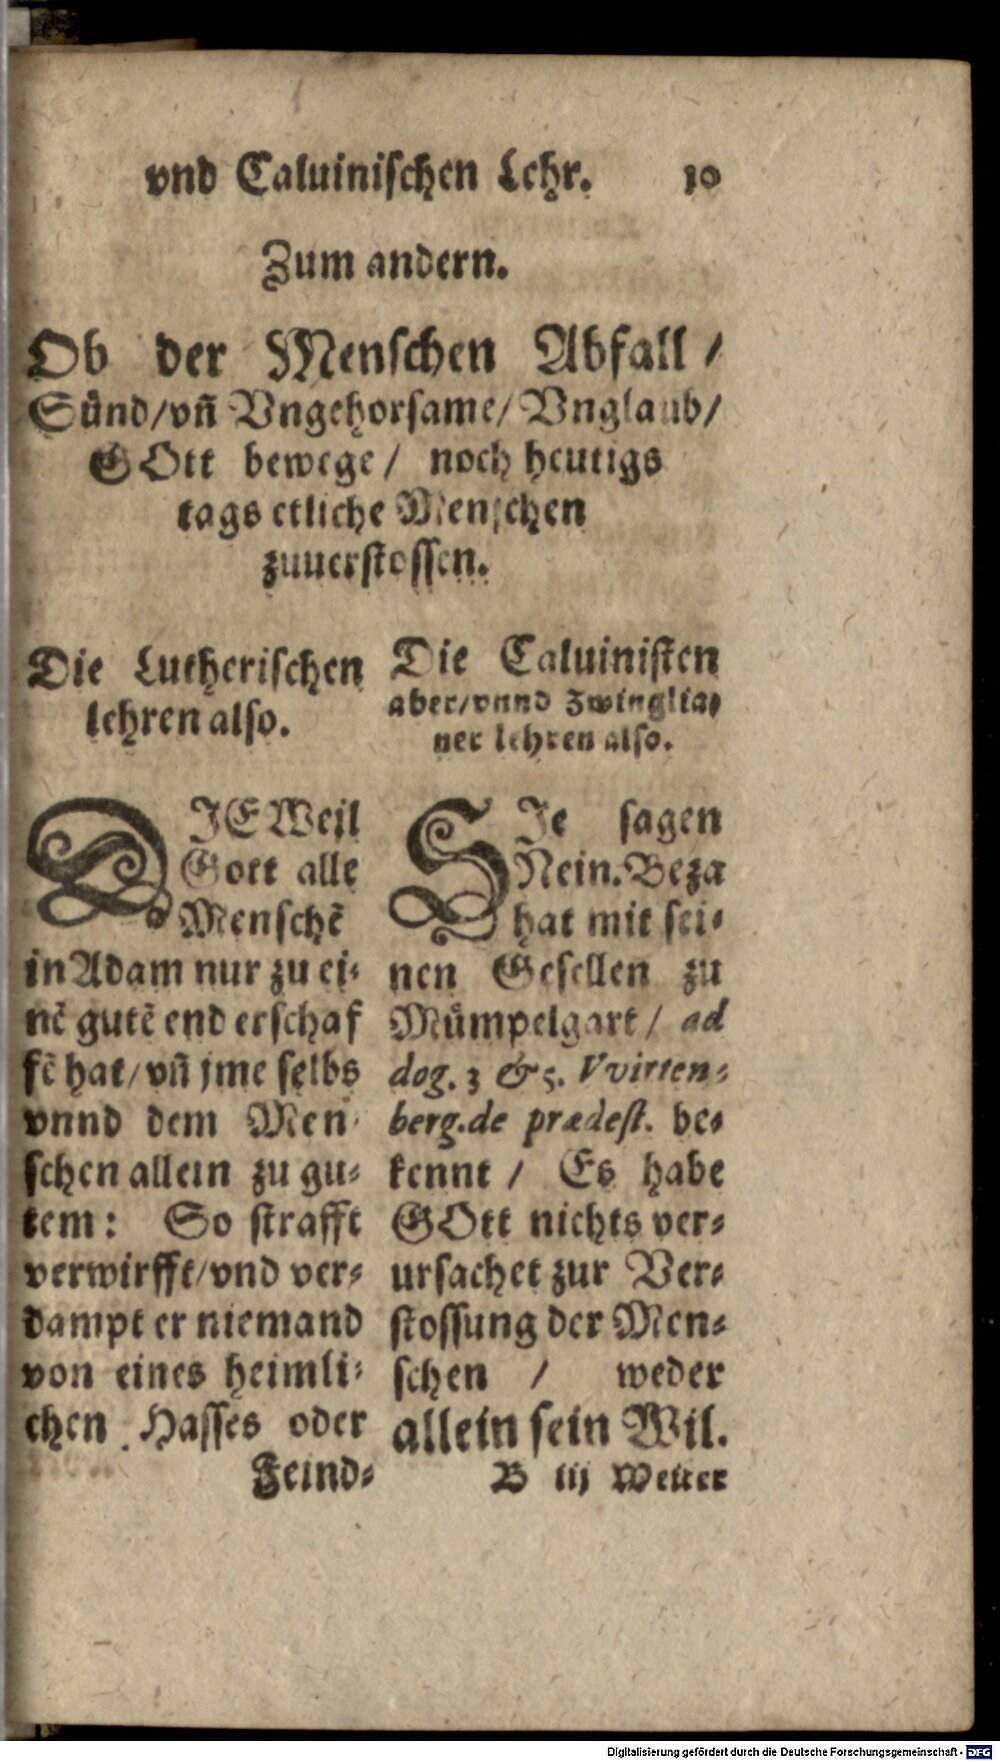 vnd Caluinischen Lehr. 10
Zum andern.
Ob der Menschen Abfall /
Sünd/vñ Vngehorsame/ Vnglaub/
GOtt bewege / noch heutigs
tags etliche Menschen
zuuerstossen.
Die Lutherischen
lehren also.
DIEWeil
Gott alle
Menschẽ
in Adam nur zu ei-
nẽ gutẽ end erschaf
fẽ hat/vñ jme selbs
vnnd dem Men-
schen allein zu gu-
tem: So strafft
verwirfft/vnd ver-
dampt er niemand
von eines heimli-
chen Hasses oder
Feind-
Die Caluinisten
aber/vnnd Zwinglia-
ner lehren also.
SIe sagen
Nein. Beza
hat mit sei-
nen Gesellen zu
Mümpelgart / ad
dog. 3 & 5. Vvirten-
berg.de prædest. be-
kennt / Es habe
GOtt nichts ver-
ursachet zur Ver-
stossung der Men-
schen / weder
allein sein Wil.
B iij Weiter
Digitalisierung gefördert durch die Deutsche Forschungsgemeinschaft - DFG